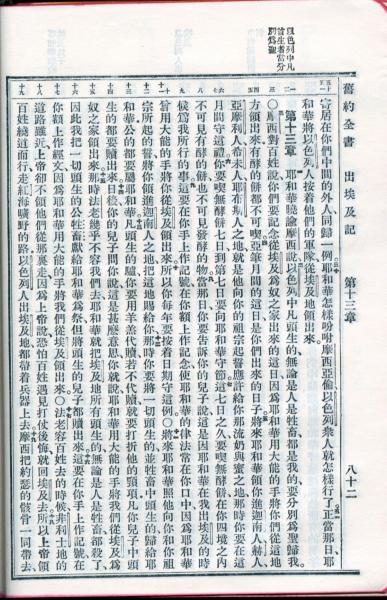 以色列中凡
首生者當分
別為聖
舊約全書 出埃及記 第十三章 八十二
寄居在你們中間的外人同歸一例耶和華怎樣吩咐摩西亞倫以色列衆人就怎樣行了正當那日耶
和華將以色列人按着他們的軍隊從埃及地領出來
第十三章 耶和華曉諭摩西說以色列中凡頭生的無論是人是牲畜都是我的要分別為聖歸我
○摩西對百姓說你們要記念從埃及為奴之家出來的這日因為耶和華用大能的手將你們從這地
方領出來有酵的餅都不可喫亞筆月間的這日是你們出來的日子將來耶和華領你進迦南人赫人
亞摩利人希未人耶布斯人之地就是他向你的祖宗起誓應許給你那流奶與蜜之地那時你要在這
月間守這禮你要喫無酵餅七日到第七日要向耶和華守節這七日之久要喫無酵餅在你四境之內
不可見有酵的餅也不可見發酵的物當那日你要告訴你的兒子說這是因耶和華在我出埃及的時
候為我所行的事這要在你手上作記號在你額上作記念使耶和華的律法常在你口中因為耶和華
曾用大能的手將你從埃及領出來所以你每年要按着日期守這例○將來耶和華照他向你和你祖
宗所起的誓將你領進迦南人之地把這地賜給你那時你要將一切頭生的並牲畜中頭生的歸給耶
和華公的都要屬耶和華凡頭生的驢你要用羊羔代贖若不代贖就要打折他的頸項凡你兒子中頭
生的都要贖出來日後你的兒子問你說這是甚麼意思你就說耶和華用大能的手將我們從埃及為
奴之家領出來那時法老幾乎不容我們去耶和華就把埃及地所有頭生的無論是人是牲畜都殺了
因此我把一切頭生的公牲畜獻給耶和華為祭但將頭生的兒子都贖出來這要在你手上作記號在
你額上作經文因為耶和華用大能的手將我們從埃及領出來○法老容百姓去的時候非利士地的
道路雖近上帝卻不領他們從那裏走因為上帝說恐怕百姓遇見打仗後悔就回埃及去所以上帝領
百姓繞道而行走紅海曠野的路以色列人出埃及地都帶着兵器上去摩西把約瑟的骸骨一同帶去